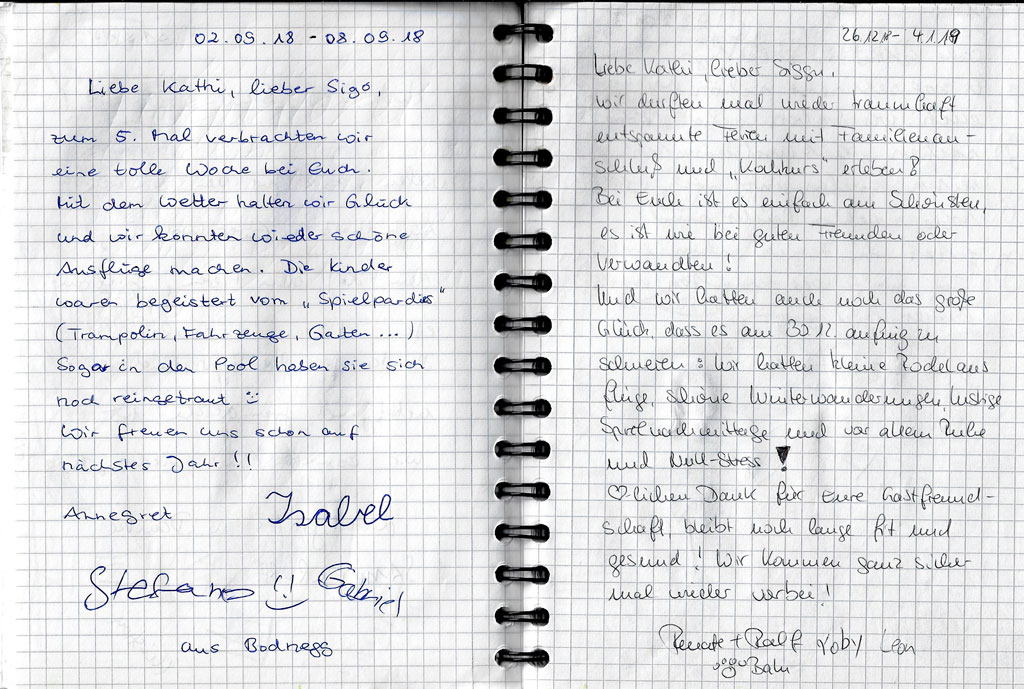 02.09.18 - 08.09.18
Liebe Kathi, lieber Sigo,
zum 5. Mal verbrachten wir
eine tolle Woche bei Euch.
Mit dem Wetter halten wir Glück
und wir konnten wieder schöne
Ausflüge machen. Die Kinder
waren begeistert vom „Spielpardies"
(Trampolin, Fahrzeuge, Garten...)
Sogar in den Pool haben sie sich
noch reingetraut
Wir freuen uns schon auf
nächstes Jahr!!
Annegret Isabel
Stefano !! Gabriel
aus Bodnegg
26.12.18 - 4.1.19
Liebe Kathi, lieber
wir durften mal wieder traumhaft
entspannte Ferien mit Familienan-
schluß und erleben!
Bei Euch ist es einfach am Schönsten,
es ist wie bei guten Freunden oder
Verwandten!
Und wir hatten auch noch das große
Glück, dass es am 30.12. anfing zu
schneien: wir hatten kleine Rodelaus
flüge, schöne Winterwanderungen, lustige
Spielnachmittage und vor allem Ruhe
und Null-Stress!
♡lichen Dank für Eure Gastfreund-
schaft, bleibt noch lange fit und
gesund! Wir kommen ganz sicher
mal wieder vorbei!
Renate + Ralf Leon